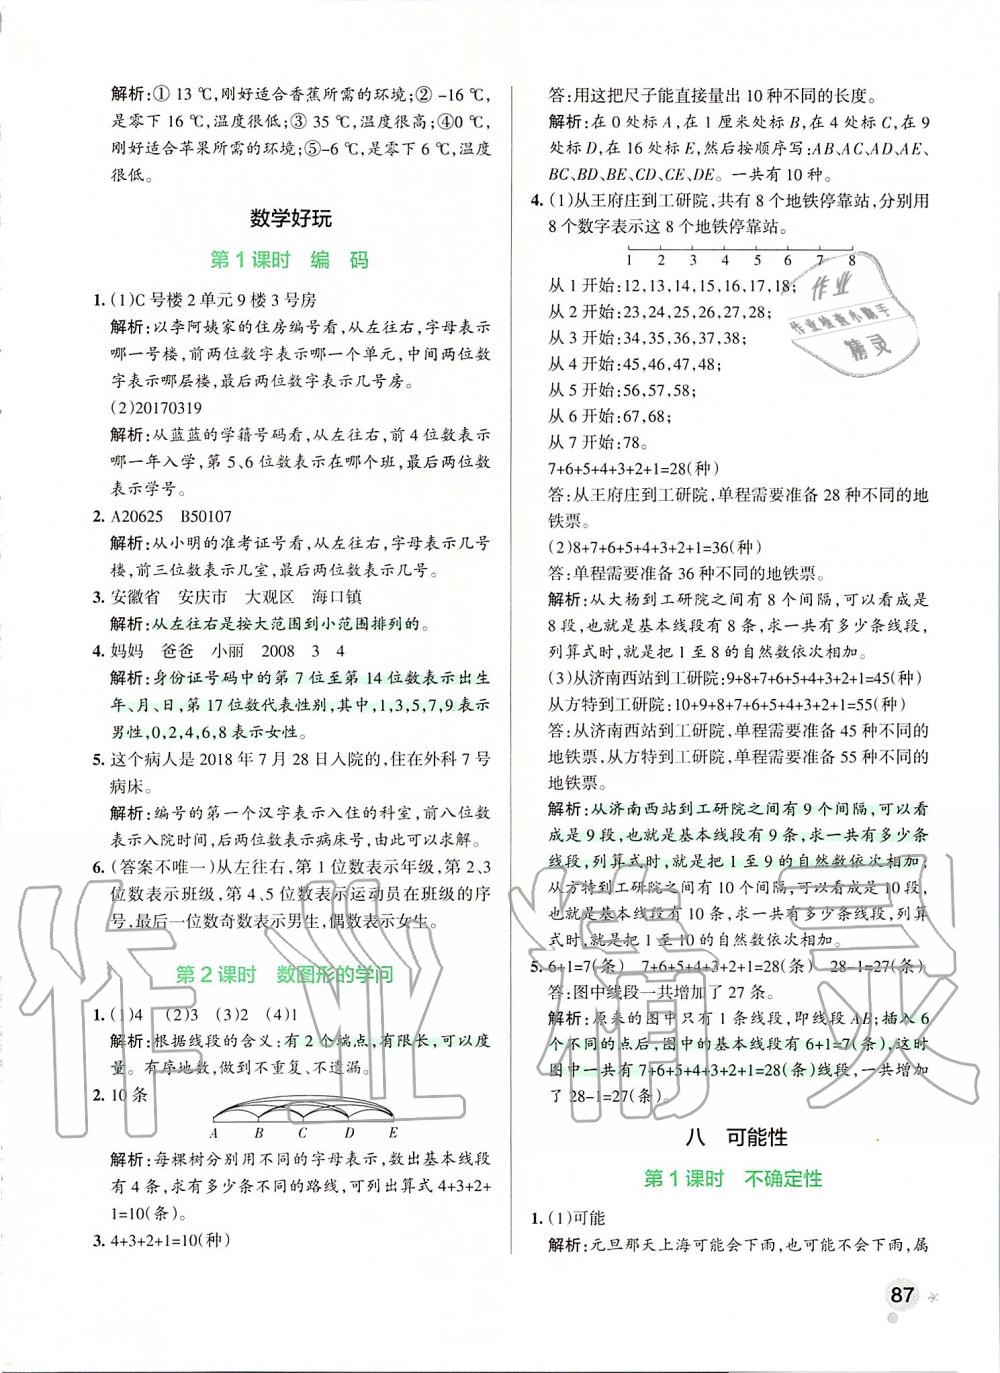 解析:① 13 ℃,刚好适合香蕉所需的环境;② -16 ℃,
是零下 16 ℃,温度很低;③ 35 ℃,温度很高;④0 ℃,
刚好适合苹果所需的环境;⑤-6 ℃,是零下 6 ℃,温度
很低。
数学好玩
第 1 课时 编 码
1. (1)C 号楼 2 单元 9 楼 3 号房
解析:以李阿姨家的住房编号看,从左往右,字母表示
哪一号楼,前两位数字表示哪一个单元,中间两位数
字表示哪层楼,最后两位数字表示几号房。
(2)20170319
解析:从蓝蓝的学籍号码看,从左往右,前 4 位数表示
哪一年入学,第 5、6 位数表示在哪个班,最后两位数
表示学号。
2. A20625 B50107
解析:从小明的准考证号看,从左往右,字母表示几号
楼,前三位数表示几室,最后两位数表示几号。
3. 安徽省 安庆市 大观区 海口镇
解析:从左往右是按大范围到小范围排列的。
4. 妈妈 爸爸 小丽 2008 3 4
解析:身份证号码中的第 7 位至第 14 位数表示出生
年、月、日,第 17 位数代表性别,其中,1,3,5,7,9 表示
男性,0,2,4,6,8 表示女性。
5. 这个病人是 2018 年 7 月 28 日入院的,住在外科 7 号
病床。
解析:编号的第一个汉字表示入住的科室,前八位数
表示入院时间,后两位数表示病床号,由此可以求解。
6. (答案不唯一)从左往右,第 1 位数表示年级,第 2、3
位数表示班级,第 4、5 位数表示运动员在班级的序
号,最后一位数奇数表示男生,偶数表示女生。
第 2 课时 数图形的学问
1. (1)4 (2)3 (3)2 (4)1
解析:根据线段的含义:有 2 个端点,有限长,可以度
量。有序地数,做到不重复、不遗漏。
2. 10 条
A B C D E
解析:每棵树分别用不同的字母表示,数出基本线段
有 4 条,求有多少条不同的路线,可列出算式 4+3+2+
1=10(条)。
3. 4+3+2+1=10(种)
答:用这把尺子能直接量出 10 种不同的长度。
解析:在 0 处标 A,在 1 厘米处标 B,在 4 处标 C,在 9
处标 D,在 16 处标 E,然后按顺序写:AB、AC、AD、AE、
BC、BD、BE、CD、CE、DE。一共有 10 种。
4. (1)从王府庄到工研院,共有 8 个地铁停靠站,分别用
8 个数字表示这 8 个地铁停靠站。
1 2 3 4 5 6 7 8
从 1 开始:12,13,14,15,16,17,18;
从 2 开始:23,24,25,26,27,28;
从 3 开始:34,35,36,37,38;
从 4 开始:45,46,47,48;
从 5 开始:56,57,58;
从 6 开始:67,68;
从 7 开始:78。
7+6+5+4+3+2+1=28(种)
答:从王府庄到工研院,单程需要准备 28 种不同的地
铁票。
(2)8+7+6+5+4+3+2+1=36(种)
答:单程需要准备 36 种不同的地铁票。
解析:从大杨到工研院之间有 8 个间隔,可以看成是
8 段,也就是基本线段有 8 条,求一共有多少条线段,
列算式时,就是把 1 至 8 的自然数依次相加。
(3)从济南西站到工研院:9+8+7+6+5+4+3+2+1=45(种)
从方特到工研院:10+9+8+7+6+5+4+3+2+1=55(种)
答:从济南西站到工研院,单程需要准备 45 种不同的
地铁票,从方特到工研院,单程需要准备 55 种不同的
地铁票。
解析:从济南西站到工研院之间有 9 个间隔,可以看
成是 9 段,也就是基本线段有 9 条,求一共有多少条
线段,列算式时,就是把 1 至 9 的自然数依次相加,
从方特到工研院之间有 10 个间隔,可以看成是 10 段,
也就是基本线段有 10 条,求一共有多少条线段,列算
式时,就是把 1 至 10 的自然数依次相加。
5. 6+1=7(条) 7+6+5+4+3+2+1=28(条) 28-1=27(条)
答:图中线段一共增加了 27 条。
解析:原来的图中只有 1 条线段,即线段 AB;插入 6
个不同的点后,图中的基本线段有 6+1=7(条),这时
图中一共有 7+6+5+4+3+2+1=28(条)线段,一共增加
了 28-1=27(条)。
八 可能性
第 1 课时 不确定性
1. (1)可能
解析:元旦那天上海可能会下雨,也可能不会下雨,属
87
作业
作业检查小助手
精灵
作业精灵